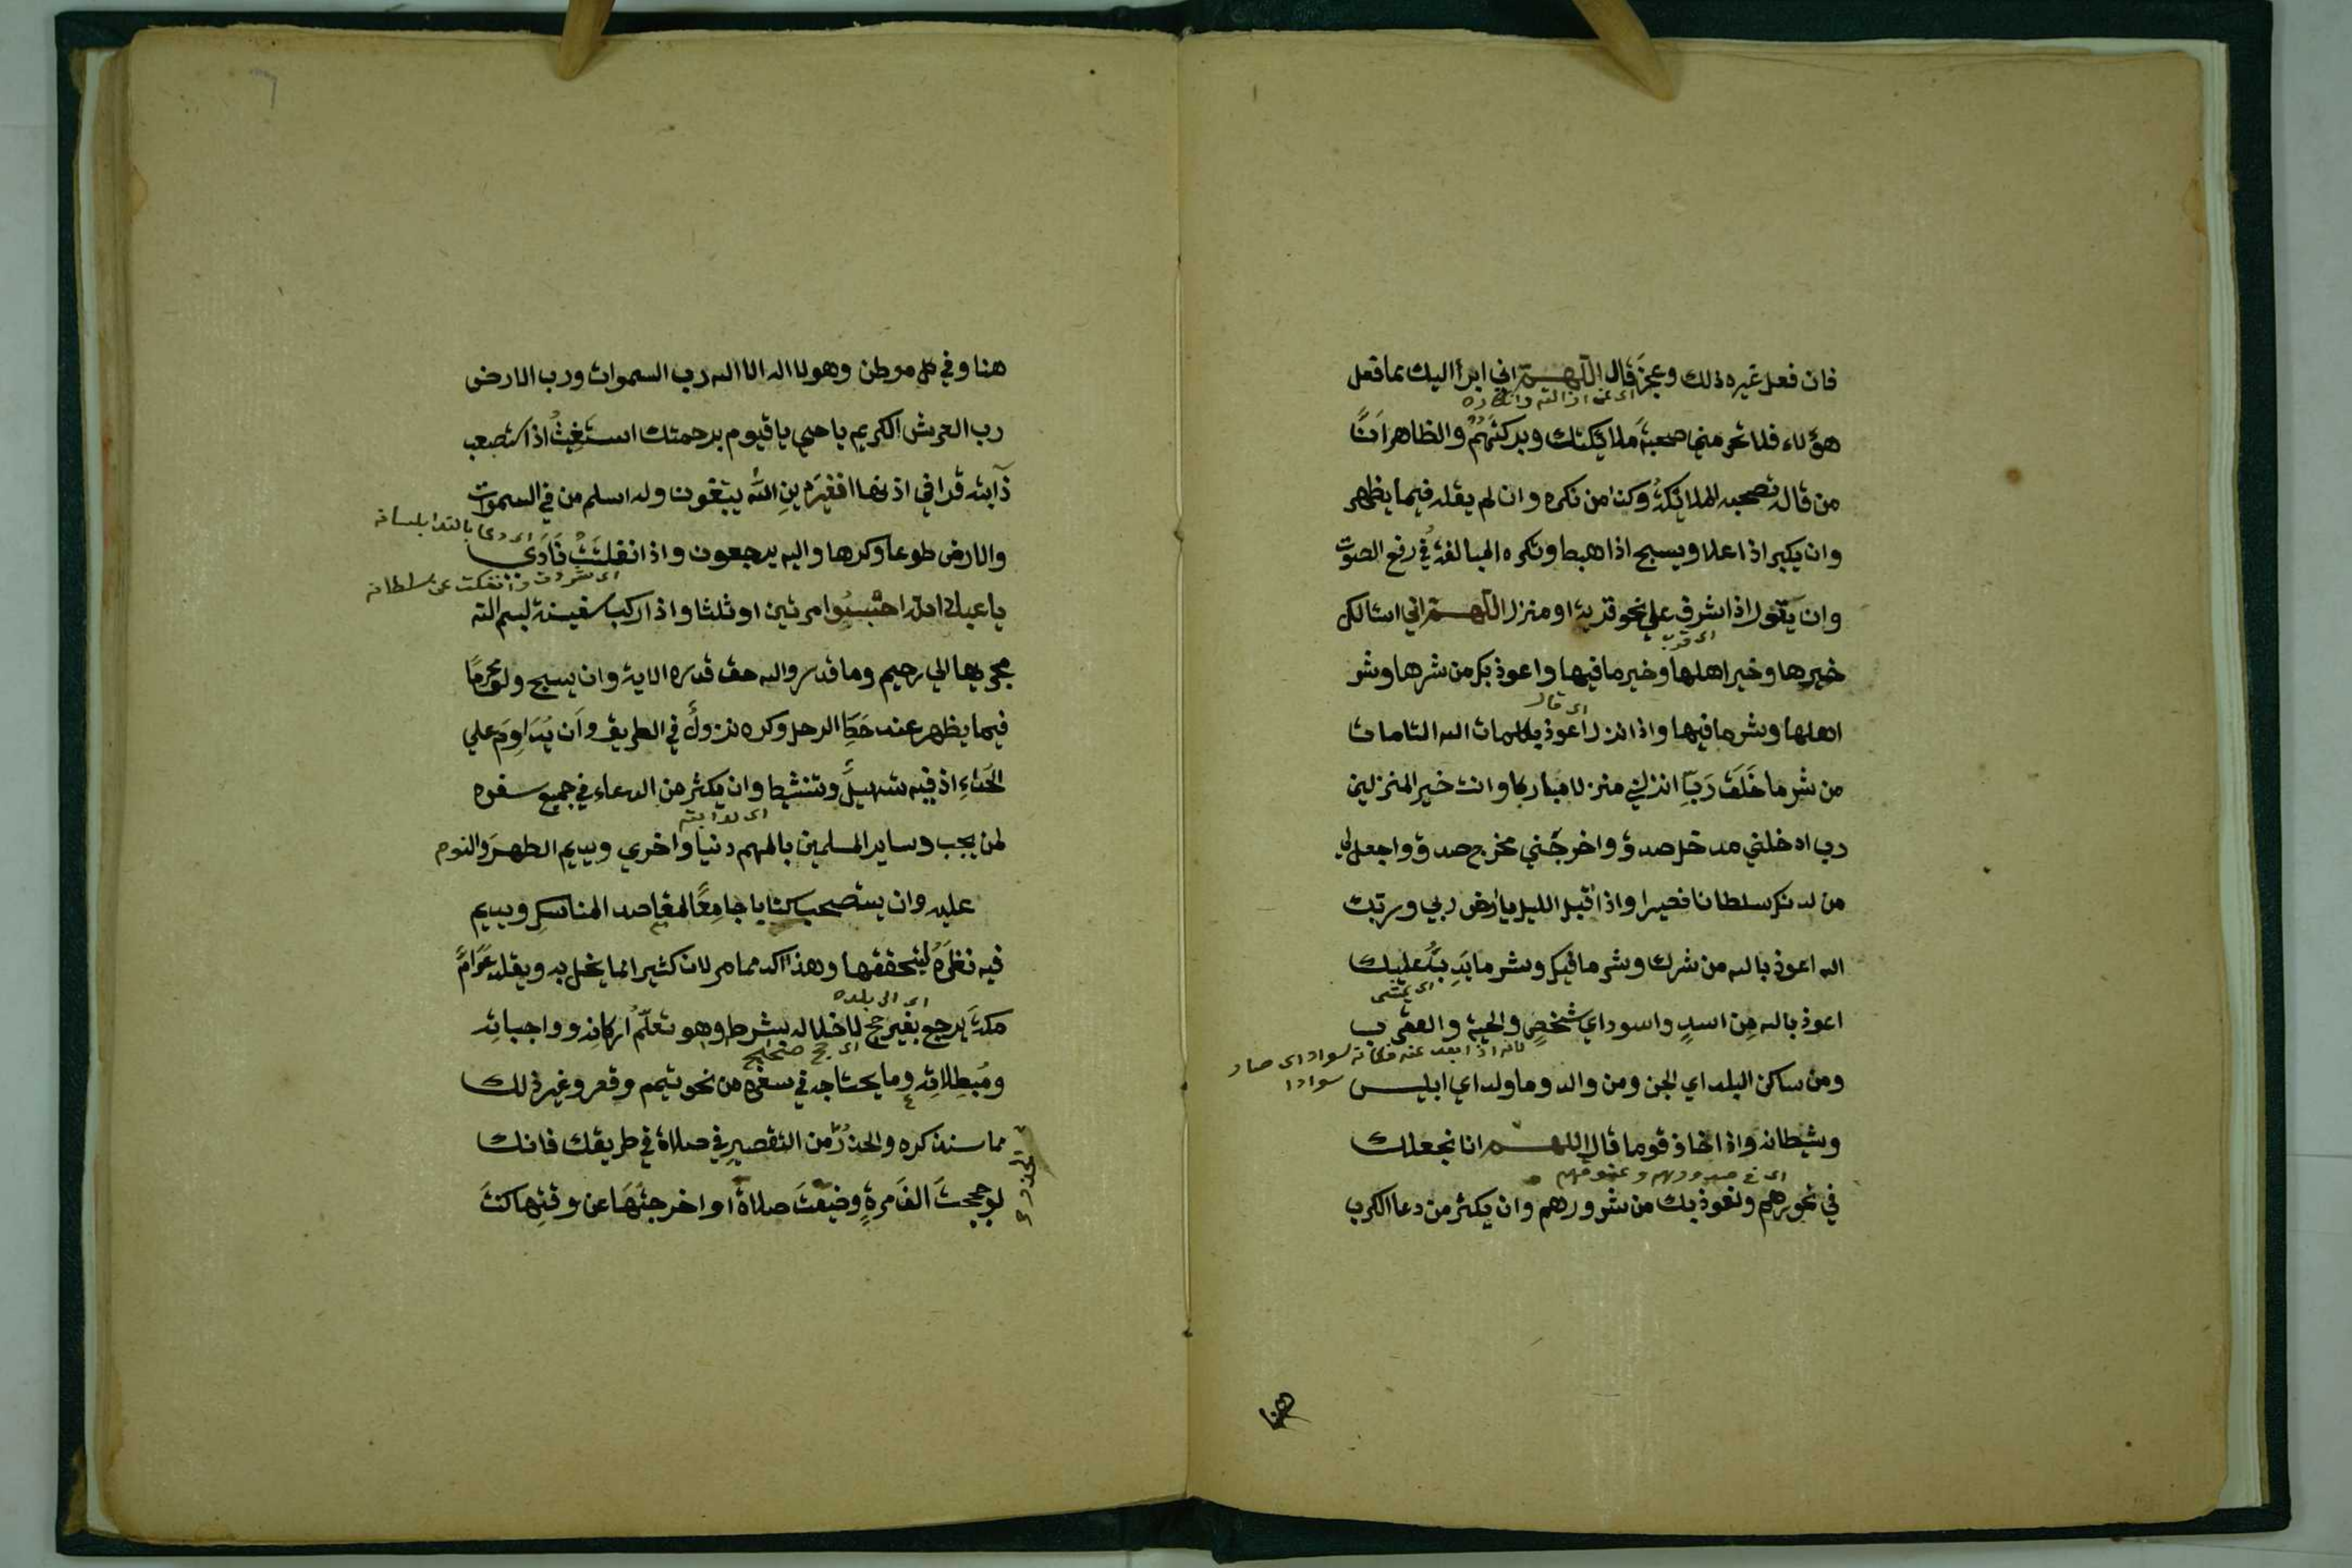 فان فعل غيره ذلك وعجز قال اللهم اني ابرأ اليك مما فعل
اي عن ازالته وانكاره
هؤلاء فلا تحرمني صحبة ملائكتك وبركتهم والظاهر ان
من قاله تصحبه الملائكة وكذا من نكره وان لم يقله فيما يظهر
وان يكبر اذا علا ويسبح اذا هبط وتكره المبالغة في رفع الصوت
وان يقول اذا اشرف علي نحو قرية او منزل اللهم اني اسالك
اي قرب
خيرها وخير اهلها وخير ما فيها واعوذ بك من شرها وشر
اي قال
اهلها وشر ما فيها واذا نزل اعوذ بكلمات الله التامات
من شر ما خلق رب انزلني منزلا مباركا وانت خير المنزلين
رب ادخلني مدخل صدق واخرجني مخرج صدق واجعل لي
من لدنك سلطانا نصيرا واذا اقبل الليل يا ارض ربي وربك
الله اعوذ بالله من شرك وشر ما فيك وشر ما يدب عليك
اي يمشي
اعوذ بالله من اسد واسود اي شخص والحية والعقرب
لانه اذا بعد عنه فكانه سواد اي صار سوادا
ومن ساكن البلد اي الجن ومن والد وما ولد اي ابليس
وشيطانه واذا خاف قوما قال اللهم انا نجعلك
اي في صدورهم وعنوقهم
في نحورهم ونعوذ بك من شرورهم وان يكثر من دعا الكرب
هنا
هنا وفي كل موطن وهو لا اله الا الله رب السموات ورب الارض
رب العرش الكريم يا حي يا قيوم برحمتك استغيث اذا استصعب
دابته قرا في اذنها افغير دين الله يبتغون وله اسلم من في السموات
اي دعا بالندا بلسانه
والارض طوعا وكرها واليه يرجعون واذا انفلتت نادي
اي شردت وانفكت عن سلطانه
يا عباد الله احبسوا مرتين او ثلثا واذا ركب سفينة بسم الله
مجريها الي رحيم وما قدروا الله حق قدره الاية وان يسبح ولو محرما
فيما يظهر عند حط الرحل وكره نزول في الطريق وان يداوم علي
الحداء اذ فيه تسهيل وتنشيطا وان يكثر من الدعاء في جميع سفره
لمن يحب وساير المسلمين بالمهم دنيا واخري ويديم الطهر والنوم
عليه وان يستصحب كتابا جامعا لمقاصد المناسك ويديم
فيه نظره ليتحققها وهذا اكد مما مر لان كثيرا مما يخل به ويقلد عوام
اي الي بلده
مكة يرجع بغير حج لاخلاله بشرط وهو تعلم اركانه وواجباته
اي حج صحيح
ومبطلاته وما يحتاجه في سفره من نحو تيمم وقصر وغير ذلك
مما سنذكره والحذر من التقصير في صلاة في طريقك فانك
لو حججت الف مرة وضيعت صلاة او اخرجتها عن وقتها كنت